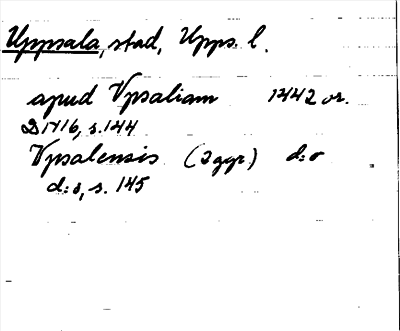 Uppsala, stad, Upps. l.
apud Vpsaliam 1442 or.
D 1716, s. 144
Vpsalensis (2 ggr) d:o
d:o, s. 145